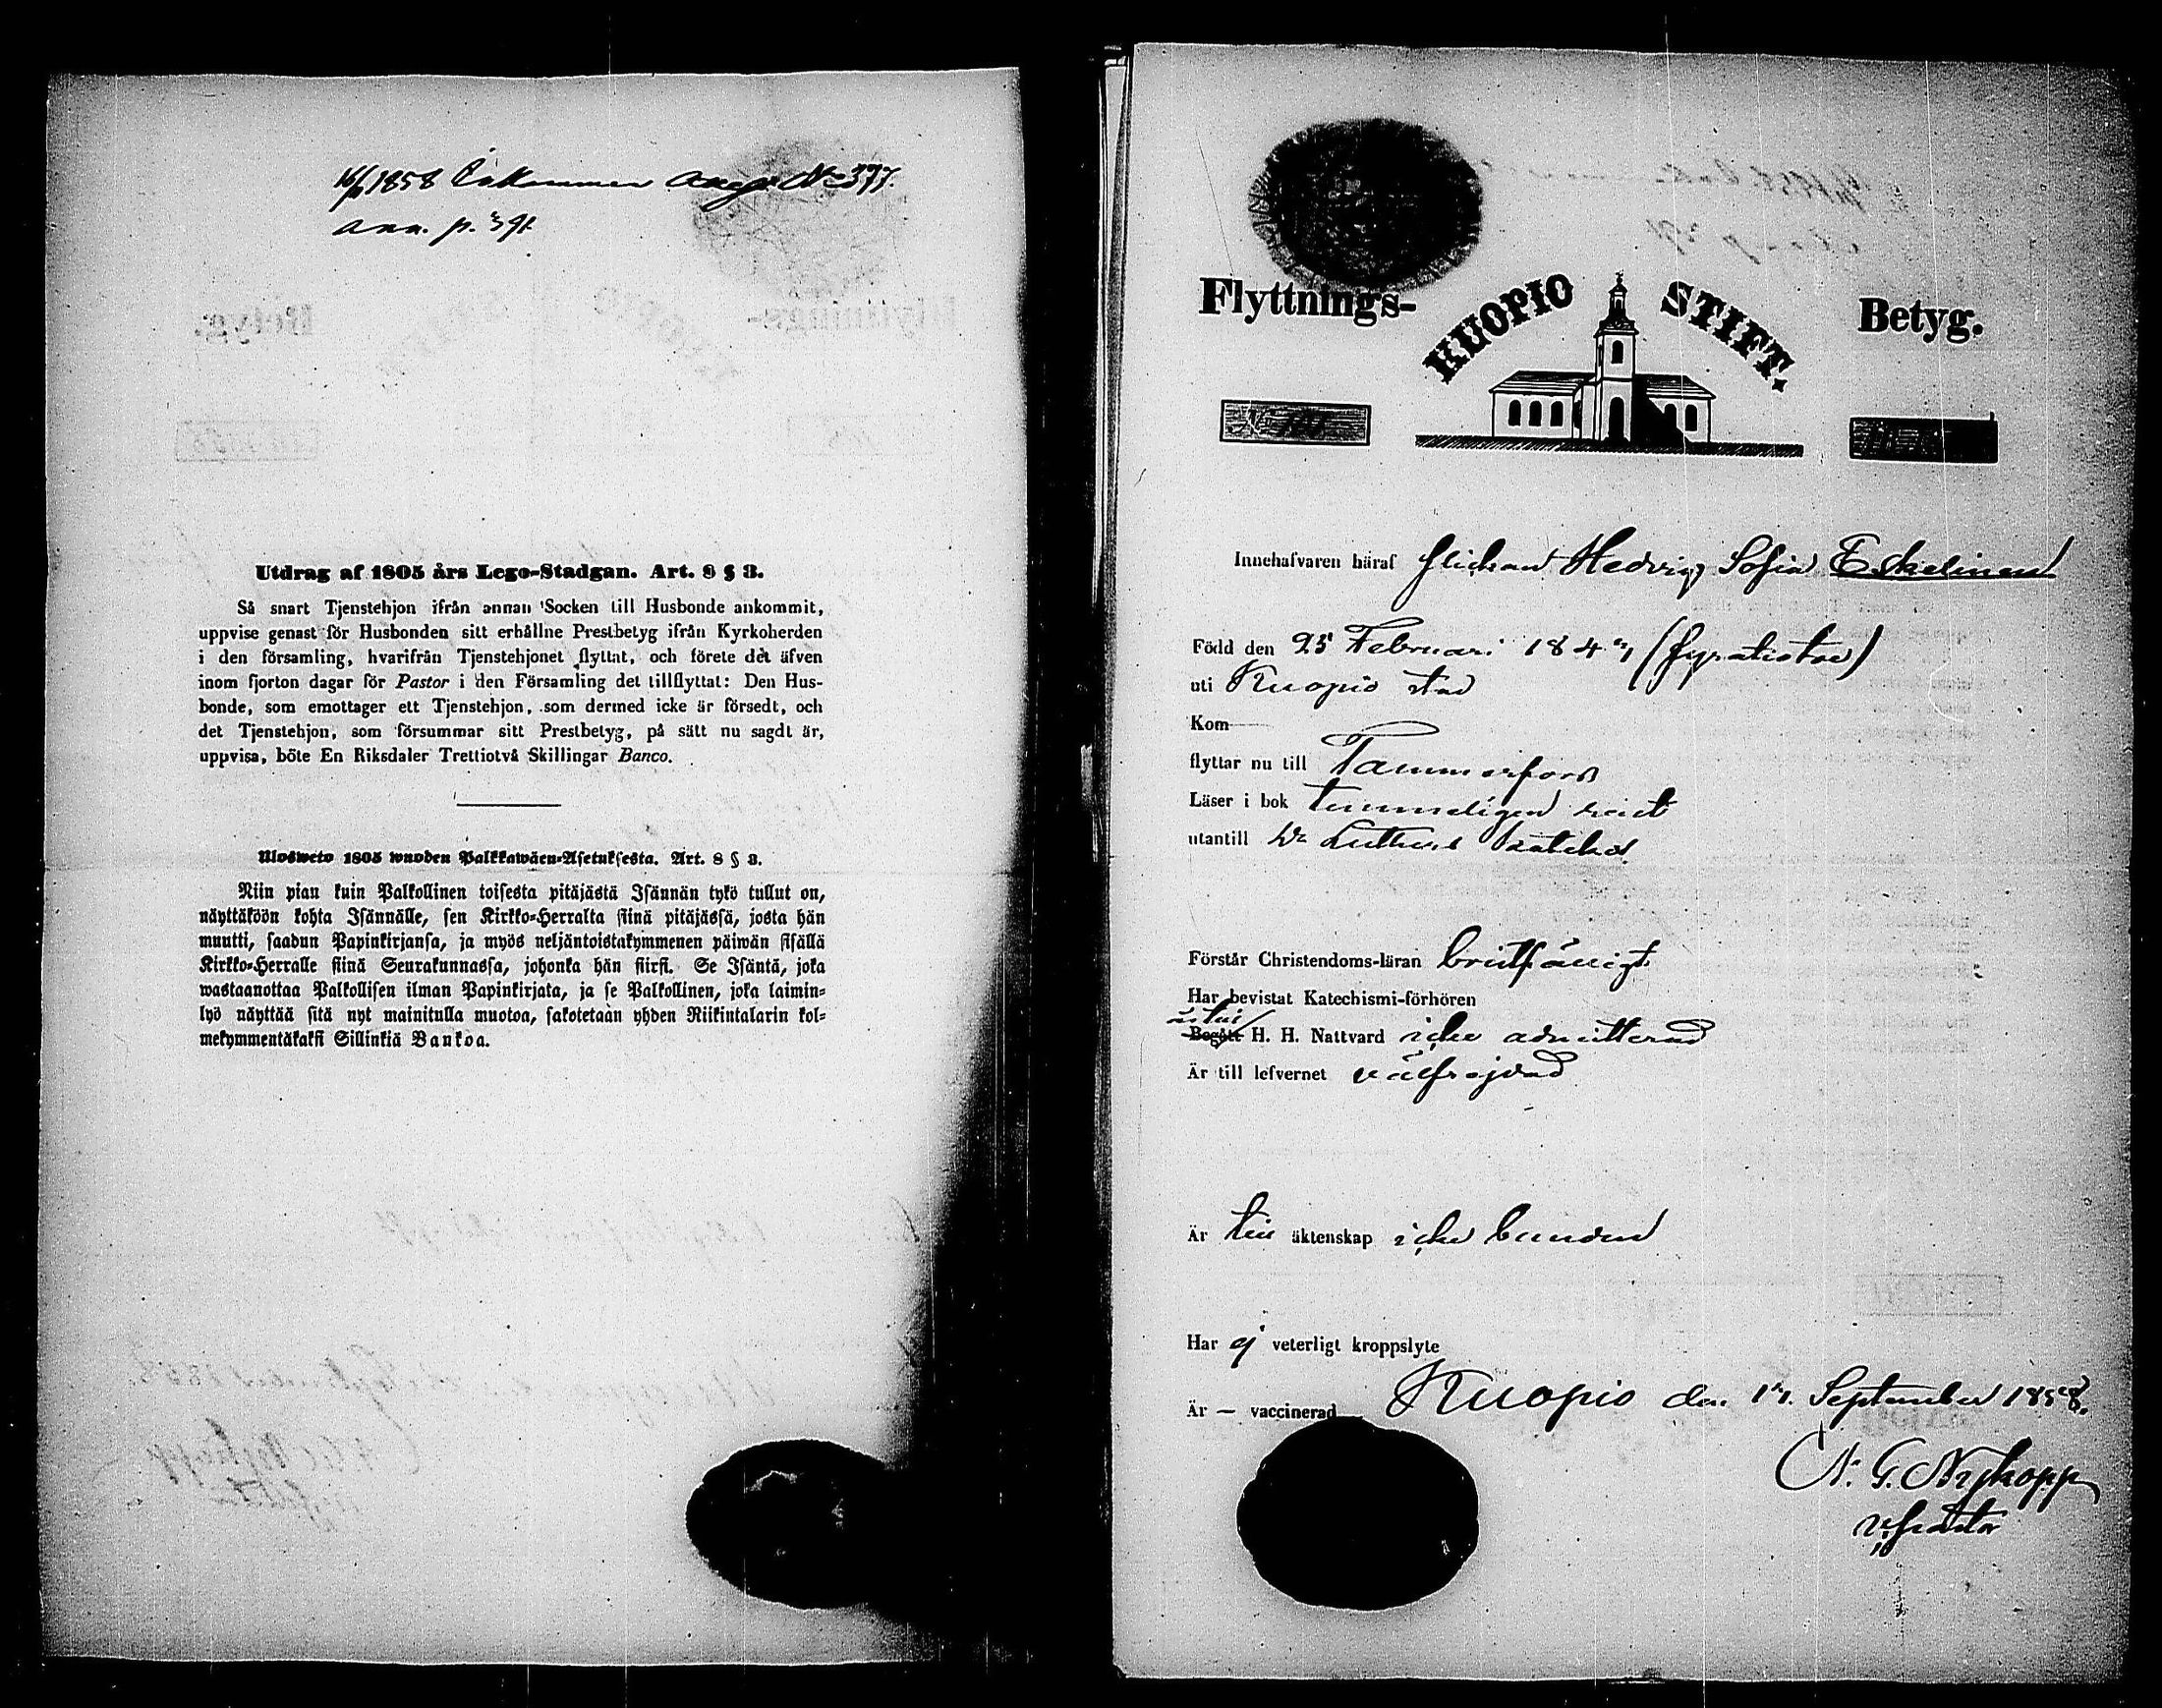 1858 Inkommer No 377.
ann. p. 391.
Utdrag af 1805 års Lego-Stadgan. Art. 8 § 3.
Så snart Tjenstehjon ifrån annan Socken till Husbonde ankommit,
uppvise genast för Husbonden sitt erhållne Prestbetyg ifrån Kyrkoherden
i den församling, hvarifrån Tjenstehjonet flyttat, och förete det äfven
inom fjorton dagar för Pastor i den Församling det tillflyttat: Den Hus-
bonde, som emottager ett Tjenstehjon, som dermed icke är försedt, och
det Tjenstehjon, som försummar sitt Prestbetyg, på sätt nu sagdt är,
uppvisa, böte En Riksdaler Trettiotvå Skillingar Banco.
Ulosweto 1805 wuoden Palkkawäen-Asetuksesta. Art. 8 § 3.
Niin pian kuin Palkollinen toisesta pitäjästä Isännän tykö tullut on,
näyttäköön kohta Isännälle, sen Kirkko-Herralta siinä pitäjässä, josta hän
muutti, saadun Papinkirjansa, ja myös neljäntoistakymmenen päiwän sisällä
Kirkko-Herralle siinä Seurakunnassa, johonka hän siirsi. Se Isäntä, joka
wastaanottaa Palkollisen ilman Papinkirjata, ja se Palkollinen, joka laimin-
lyö näyttää sitä nyt mainitulla muotoa, sakotetaan yhden Riikintalarin kol-
mekymmentäkaksi Sillinkiä Bankoa.
Flyttnings- KUOPIO STIFT. Betyg.
Innehafvaren häraf flickan Hedvig Sofia Eskelinen
Född den 25 Februari 184
uti Kuopio stad
Kom
flyttar nu till Tammerfors
Läser i bok temmeligen rent
utantill Dr Luthers kateches
Förstår Christendoms-läran bristfälligt
Har bevistat Katechismi-förhören
är till
Begått H. H. Nattvard icke admitterad
Är till lefvernet välfrejdad
Är till äktenskap icke bunden
Har ej veterligt kroppslyte
Är — vaccinerad Kuopio den 17. September 1858.
N. G. Nykopp
v. pastor